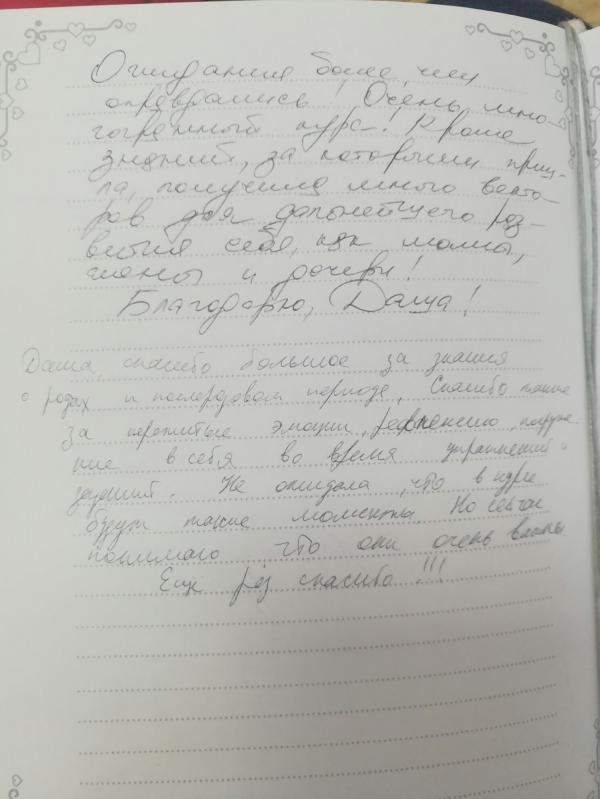 Ожидания более, чем
оправдались! Очень мно-
гогранный курс! Кроме
знаний, за которыми приш-
ла, получила много векто-
ров для дальнейшего раз-
вития себя, как мамы,
жены и дочери!
Благодарю, Даша!
Даша, спасибо большое за знания
о родах и послеродовом периоде. Спасибо также
за пережитые эмоции, рефлексию, погруже-
ние в себя во время упражнений и
заданий. Не ожидала, что в курсе
будут такие моменты. Но сейчас
понимаю, что они очень важны
Еще раз спасибо!!!